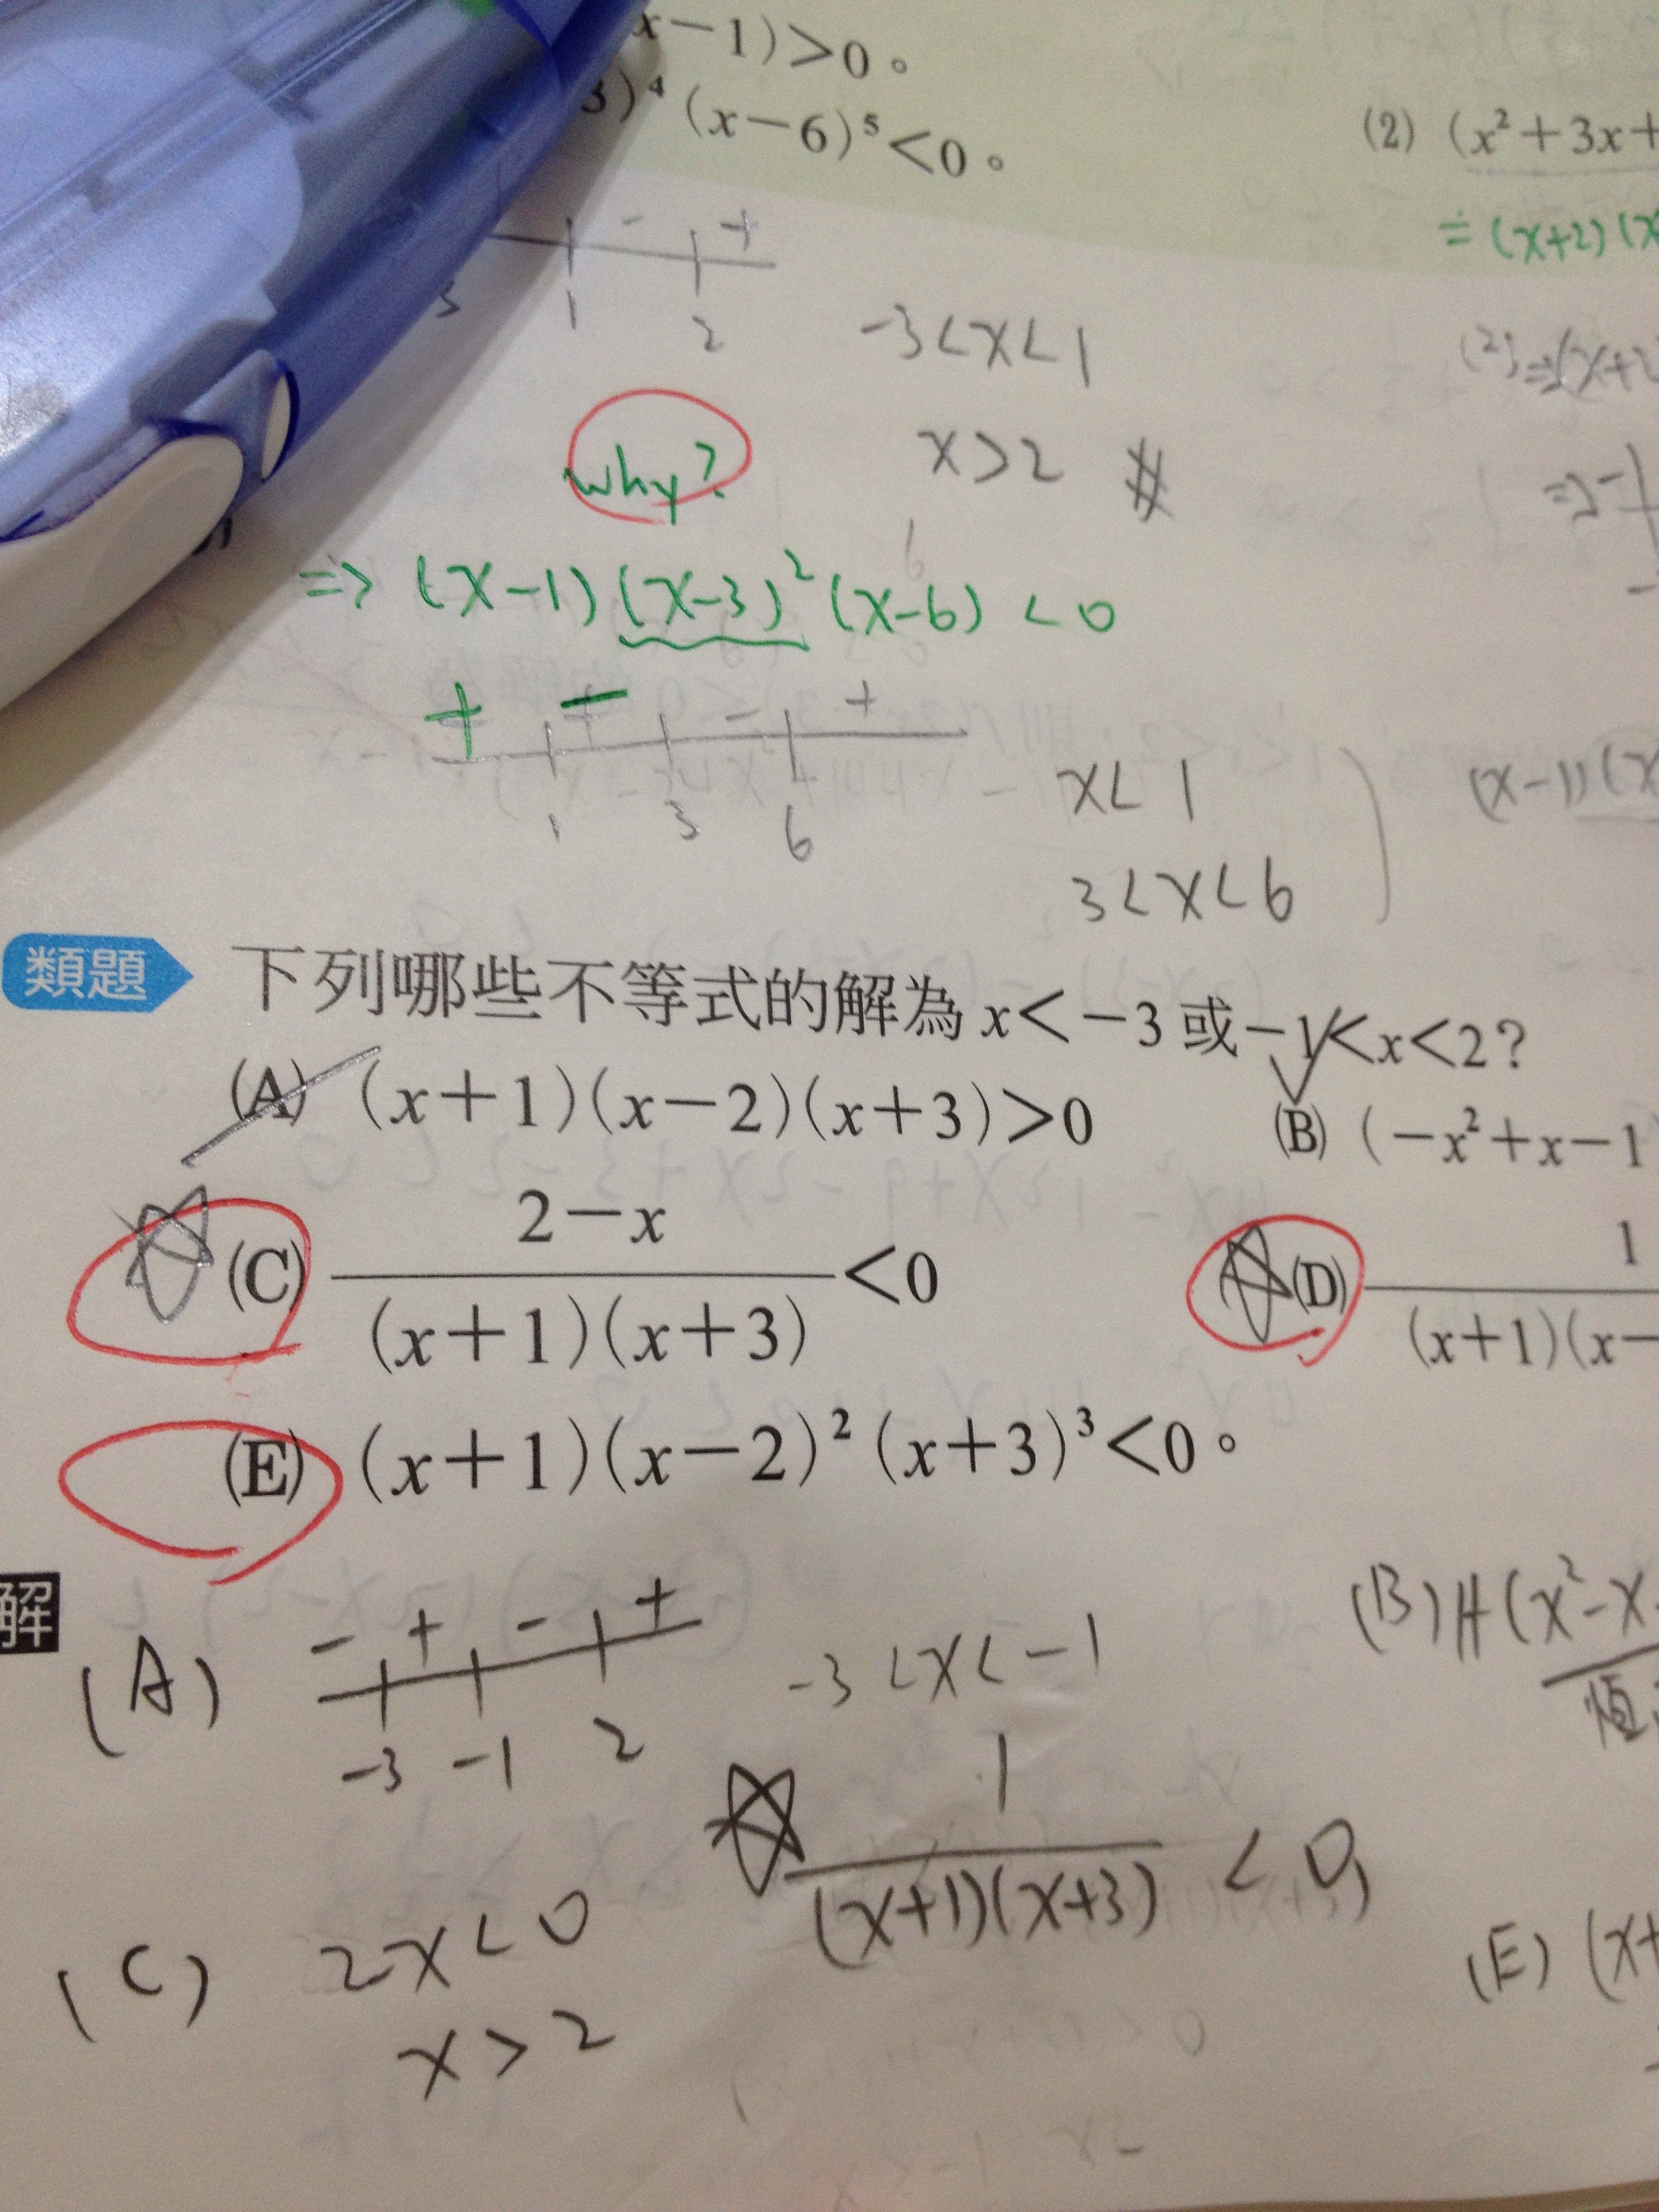 x−1)>0。
3)⁴(x−6)⁵<0。
(2) (x²+3x+
= (x+2)(x
- +
3 1 2
-3<x<1
(2)⇒(x+2
why?
x>2 #
⇒ (x-1)(x-3)²(x-6)<0
+ − - +
1 3 6
x<1
(x-1)(x
3<x<6
類題 下列哪些不等式的解為x<−3或−1<x<2?
(A) (x+1)(x−2)(x+3)>0
(B) (−x²+x−1
(C) 2−x / (x+1)(x+3) <0
(D) 1 / (x+1)(x−
(E) (x+1)(x−2)²(x+3)³<0。
解
(A) - + - +
-3 -1 2
-3<x<-1
(B) (x²-x
恆
(C) 2-x<0
1 / (x+1)(x+3) < 0
x>2
(E) (x+